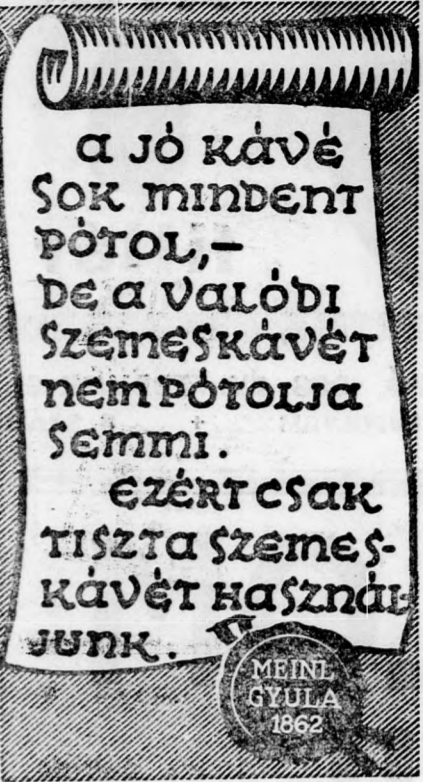 A JÓ KÁVÉ
SOK MINDENT
PÓTOL,—
DE A VALÓDI
SZEMESKÁVÉT
NEM PÓTOLJA
SEMMI.
EZÉRT CSAK
TISZTA SZEMES-
KÁVÉT HASZNÁL-
JUNK.
MEINL
GYULA
1862